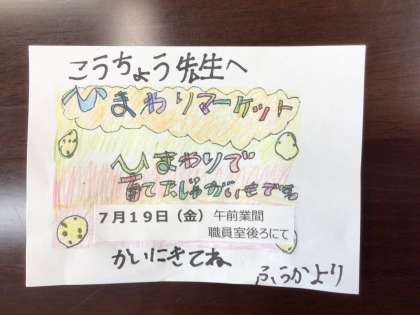 こうちょう先生へ
ひまわりマーケット
ひまわりで
育てたじゃがいもです
7月19日（金） 午前業間
職員室後ろにて
かいにきてね
ふうかより